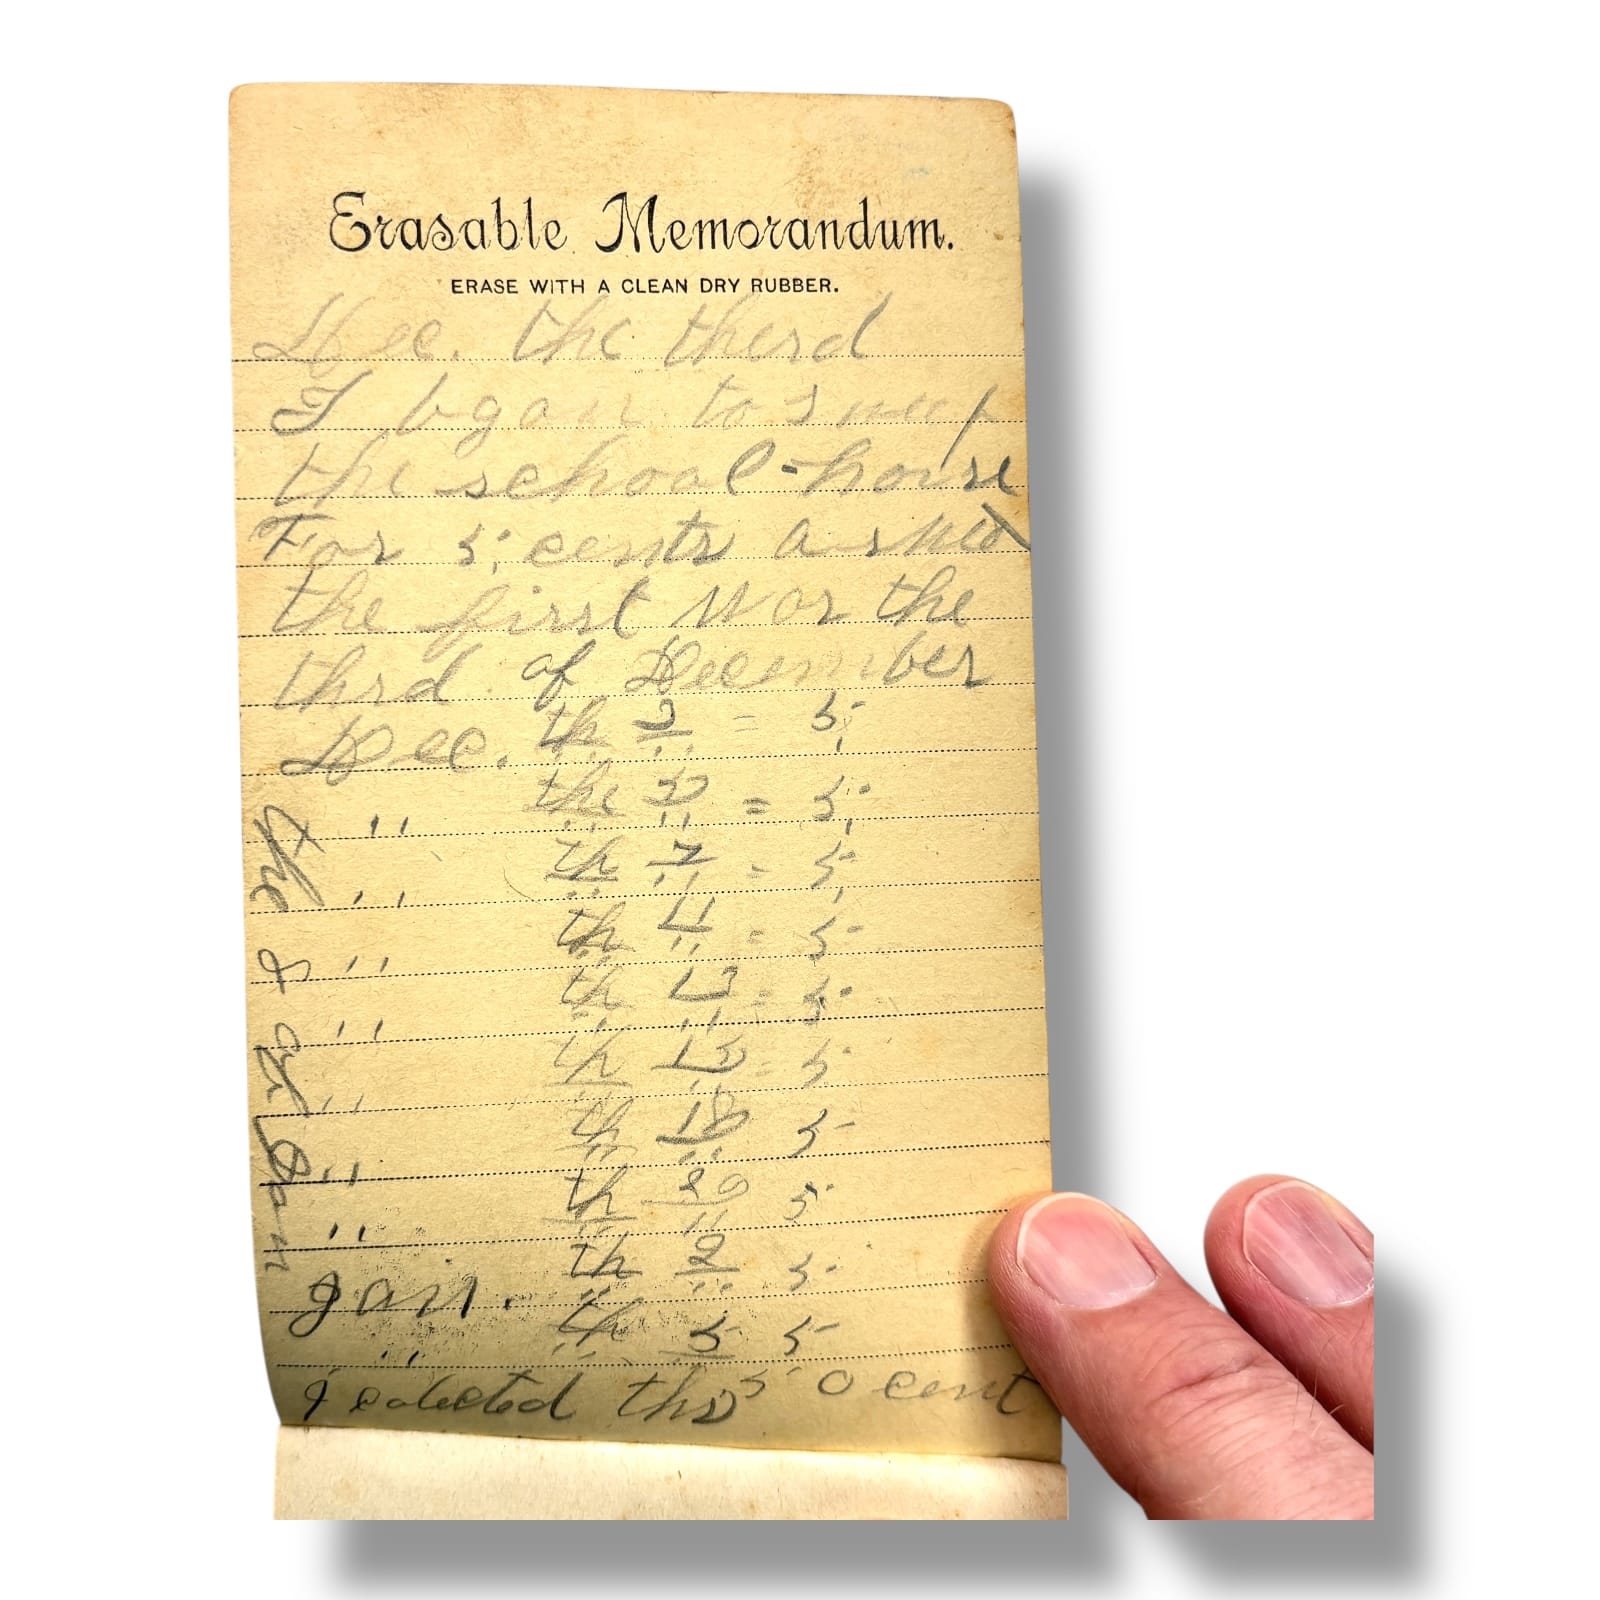 Erasable Memorandum.
ERASE WITH A CLEAN DRY RUBBER.
Dec. the therd
I bgan to sweep
the school-house
For 5 cents a
the first was the
thrd of December
Dec. th 3 = 5
" the 5 = 5
" th 7 = 5
" th 11 = 5
" th 13 = 5
" th 15 = 5
" th 18 5
" th 20 5
Jan. th 2 5
" th 5 5
I colected this 50 cent
the & of Jan